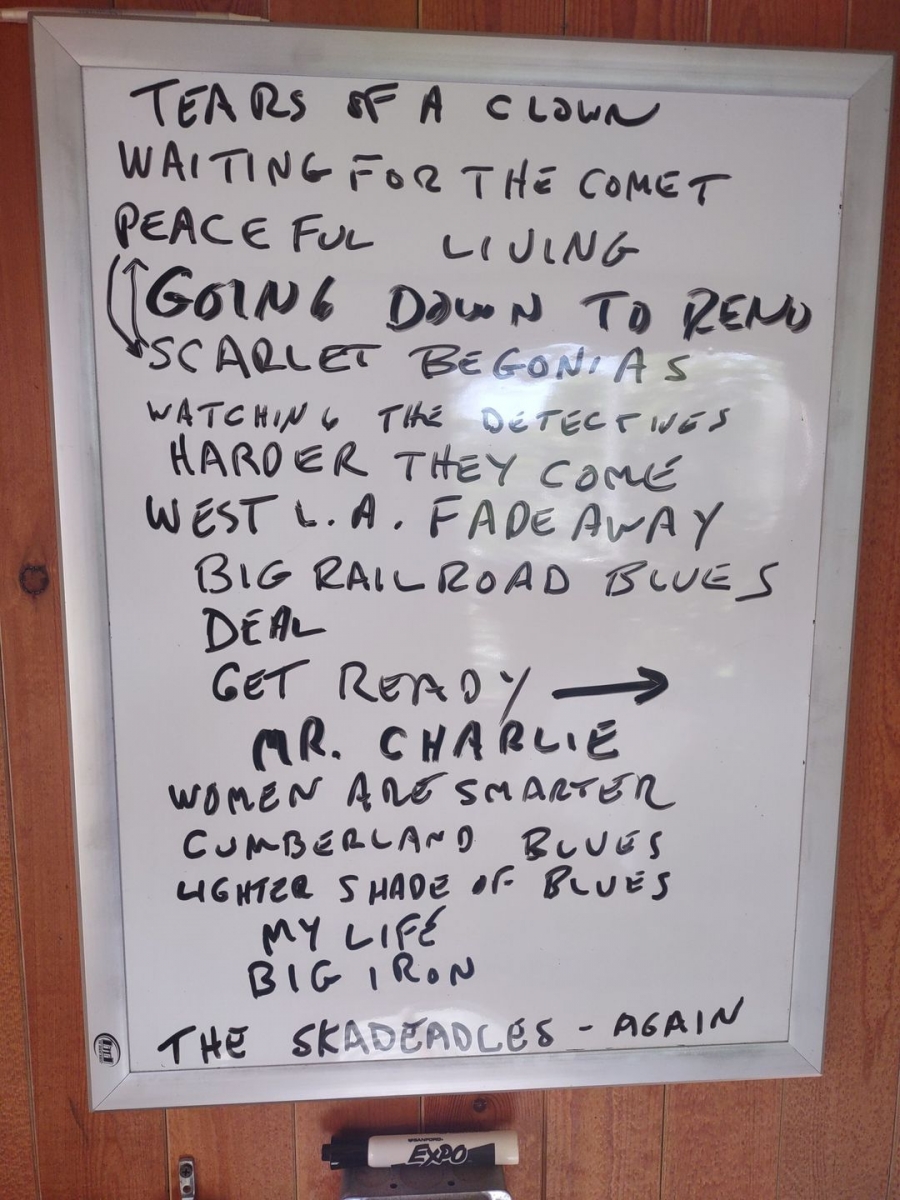 TEARS OF A CLOWN
WAITING FOR THE COMET
PEACEFUL LIVING
GOING DOWN TO RENO
SCARLET BEGONIAS
WATCHING THE DETECTIVES
HARDER THEY COME
WEST L.A. FADEAWAY
BIG RAILROAD BLUES
DEAL
GET READY →
MR. CHARLIE
WOMEN ARE SMARTER
CUMBERLAND BLUES
LIGHTER SHADE OF BLUES
MY LIFE
BIG IRON
THE SKADEADLES - AGAIN
SANFORD
EXPO